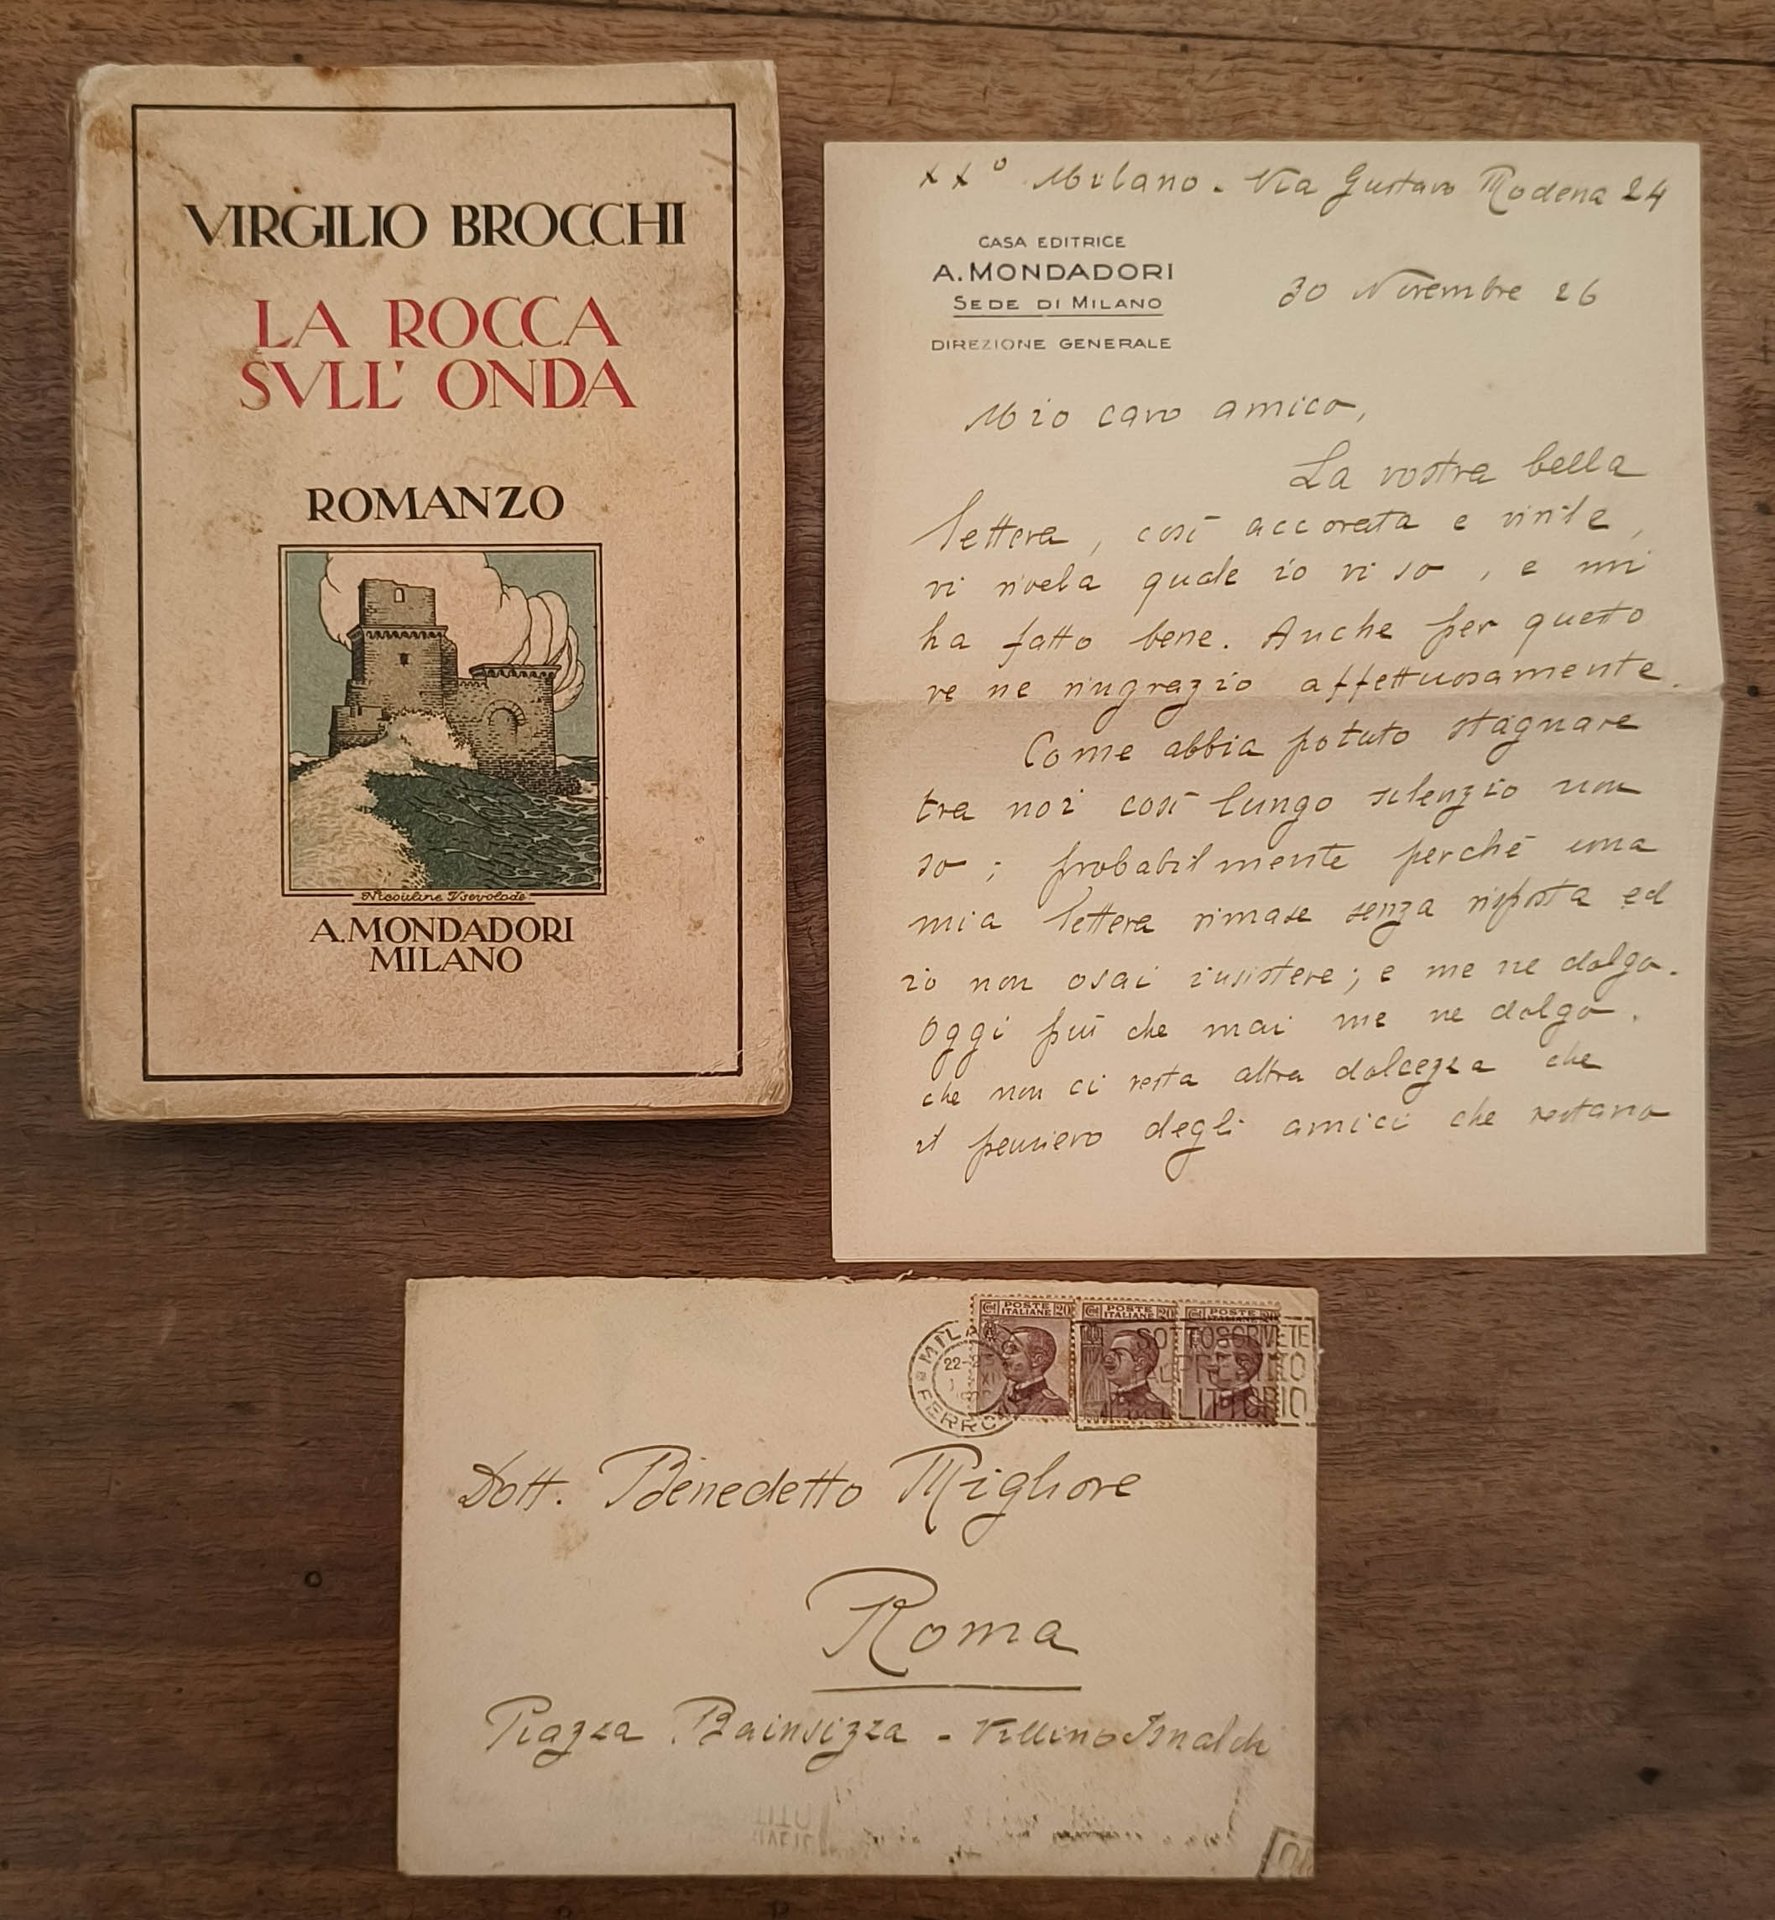 VIRGILIO BROCCHI
LA ROCCA
SVLL' ONDA
ROMANZO
Nicouline Vsevolode
A. MONDADORI
MILANO
XX° Milano - Via Gustavo Modena 24
CASA EDITRICE
A. MONDADORI
SEDE DI MILANO
DIREZIONE GENERALE
30 Novembre 26
Mio caro amico,
La vostra bella
lettera, così accorata e virile,
vi rivela quale io vi so, e mi
ha fatto bene. Anche per questo
ve ne ringrazio affettuosamente.
Come abbia potuto stagnare
tra noi così lungo silenzio non
so; probabilmente perchè una
mia lettera rimase senza risposta ed
io non osai insistere; e me ne dolgo.
Oggi più che mai me ne dolgo,
che non ci resta altra dolcezza che
il pensiero degli amici che restano
POSTE ITALIANE 20
POSTE ITALIANE 20
POSTE ITALIANE 20
MILANO
22-
XI
FERROVIA
SOTTOSCRIVETE
AL PRESTITO
LITTORIO
Dott. Benedetto Migliore
Roma
Piazza Bainsizza - Villino